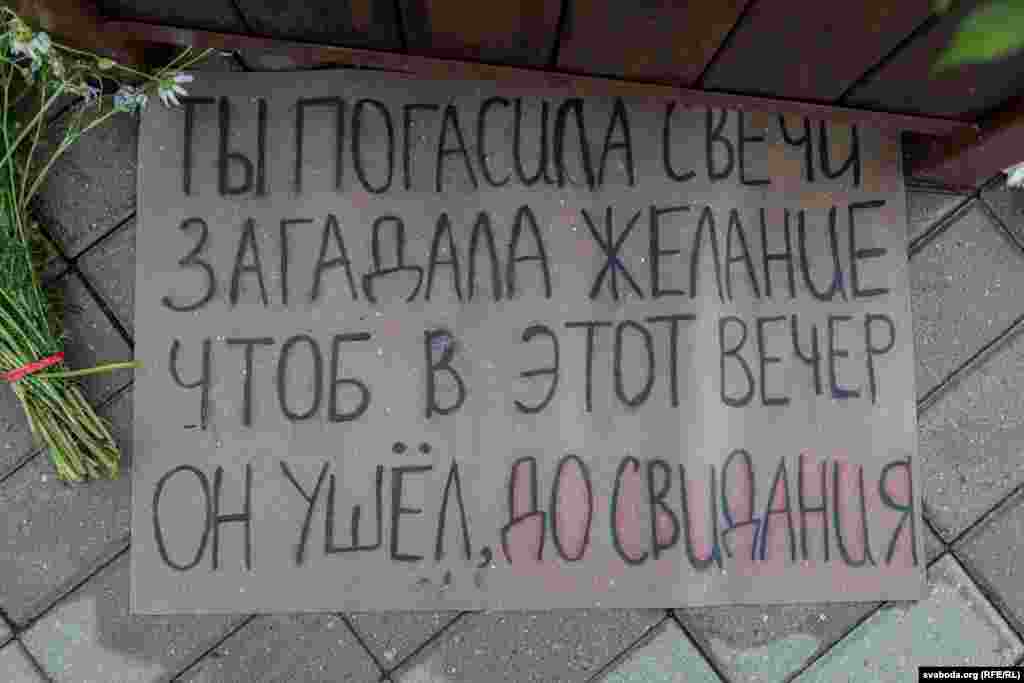 ТЫ ПОГАСИЛА СВЕЧИ
ЗАГАДАЛА ЖЕЛАНИЕ
ЧТОБ В ЭТОТ ВЕЧЕР
ОН УШЁЛ, ДО СВИДАНИЯ
svaboda.org (RFE/RL)